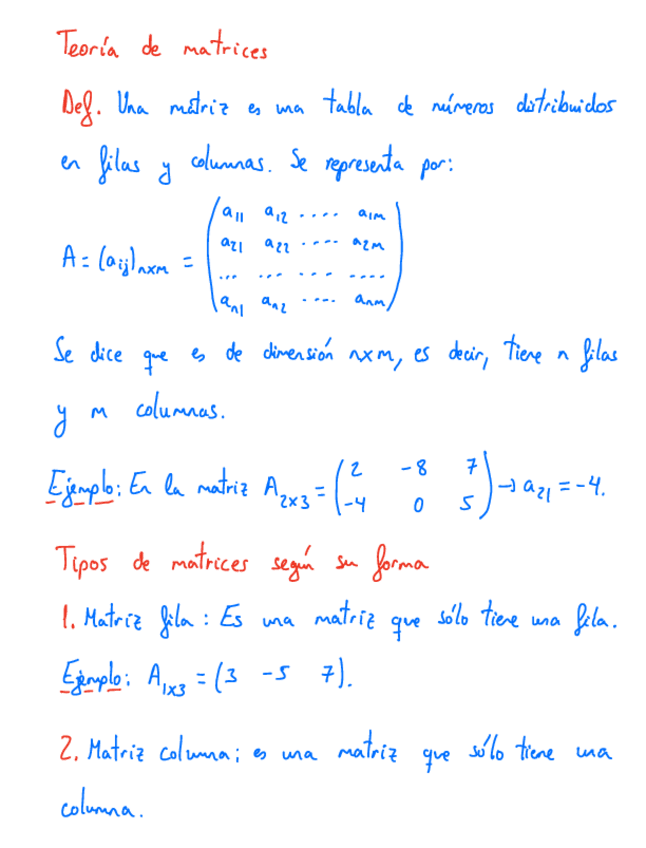 Teoría de matrices
Def. Una matriz es una tabla de números distribuidos
en filas y columnas. Se representa por:
a₁₁ a₁₂ .... a₁ₘ
a₂₁ a₂₂ .... a₂ₘ
A = (aᵢⱼ)ₙₓₘ =
... ... ... ....
aₙ₁ aₙ₂ .... aₙₘ
Se dice que es de dimensión n×m, es decir, tiene n filas
y m columnas.
Ejemplo: En la matriz A₂ₓ₃ = (2 -8 7
-4 0 5) → a₂₁ = -4.
Tipos de matrices según su forma
1. Matriz fila: Es una matriz que sólo tiene una fila.
Ejemplo: A₁ₓ₃ = (3 -5 7).
2. Matriz columna; es una matriz que sólo tiene una
columna.